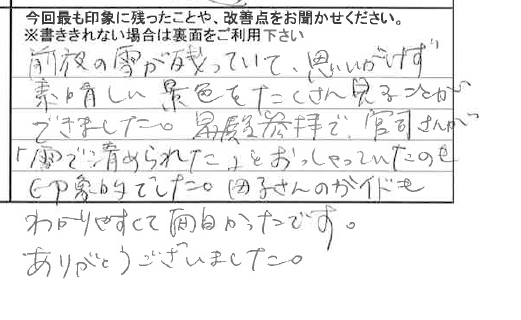 今回最も印象に残ったことや、改善点をお聞かせください。
※書ききれない場合は裏面をご利用下さい
前夜の雪が残っていて、思いがけず
素晴しい景色をたくさん見ることが
できました。昇殿参拝で、宮司さんが
「雪で清められた」とおっしゃっていたのも
印象的でした。団子さんのガイドも
わかりやすくて面白かったです。
ありがとうございました。